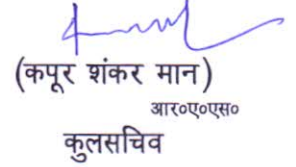 (कपूर शंकर मान)
आर०ए०एस०
कुलसचिव